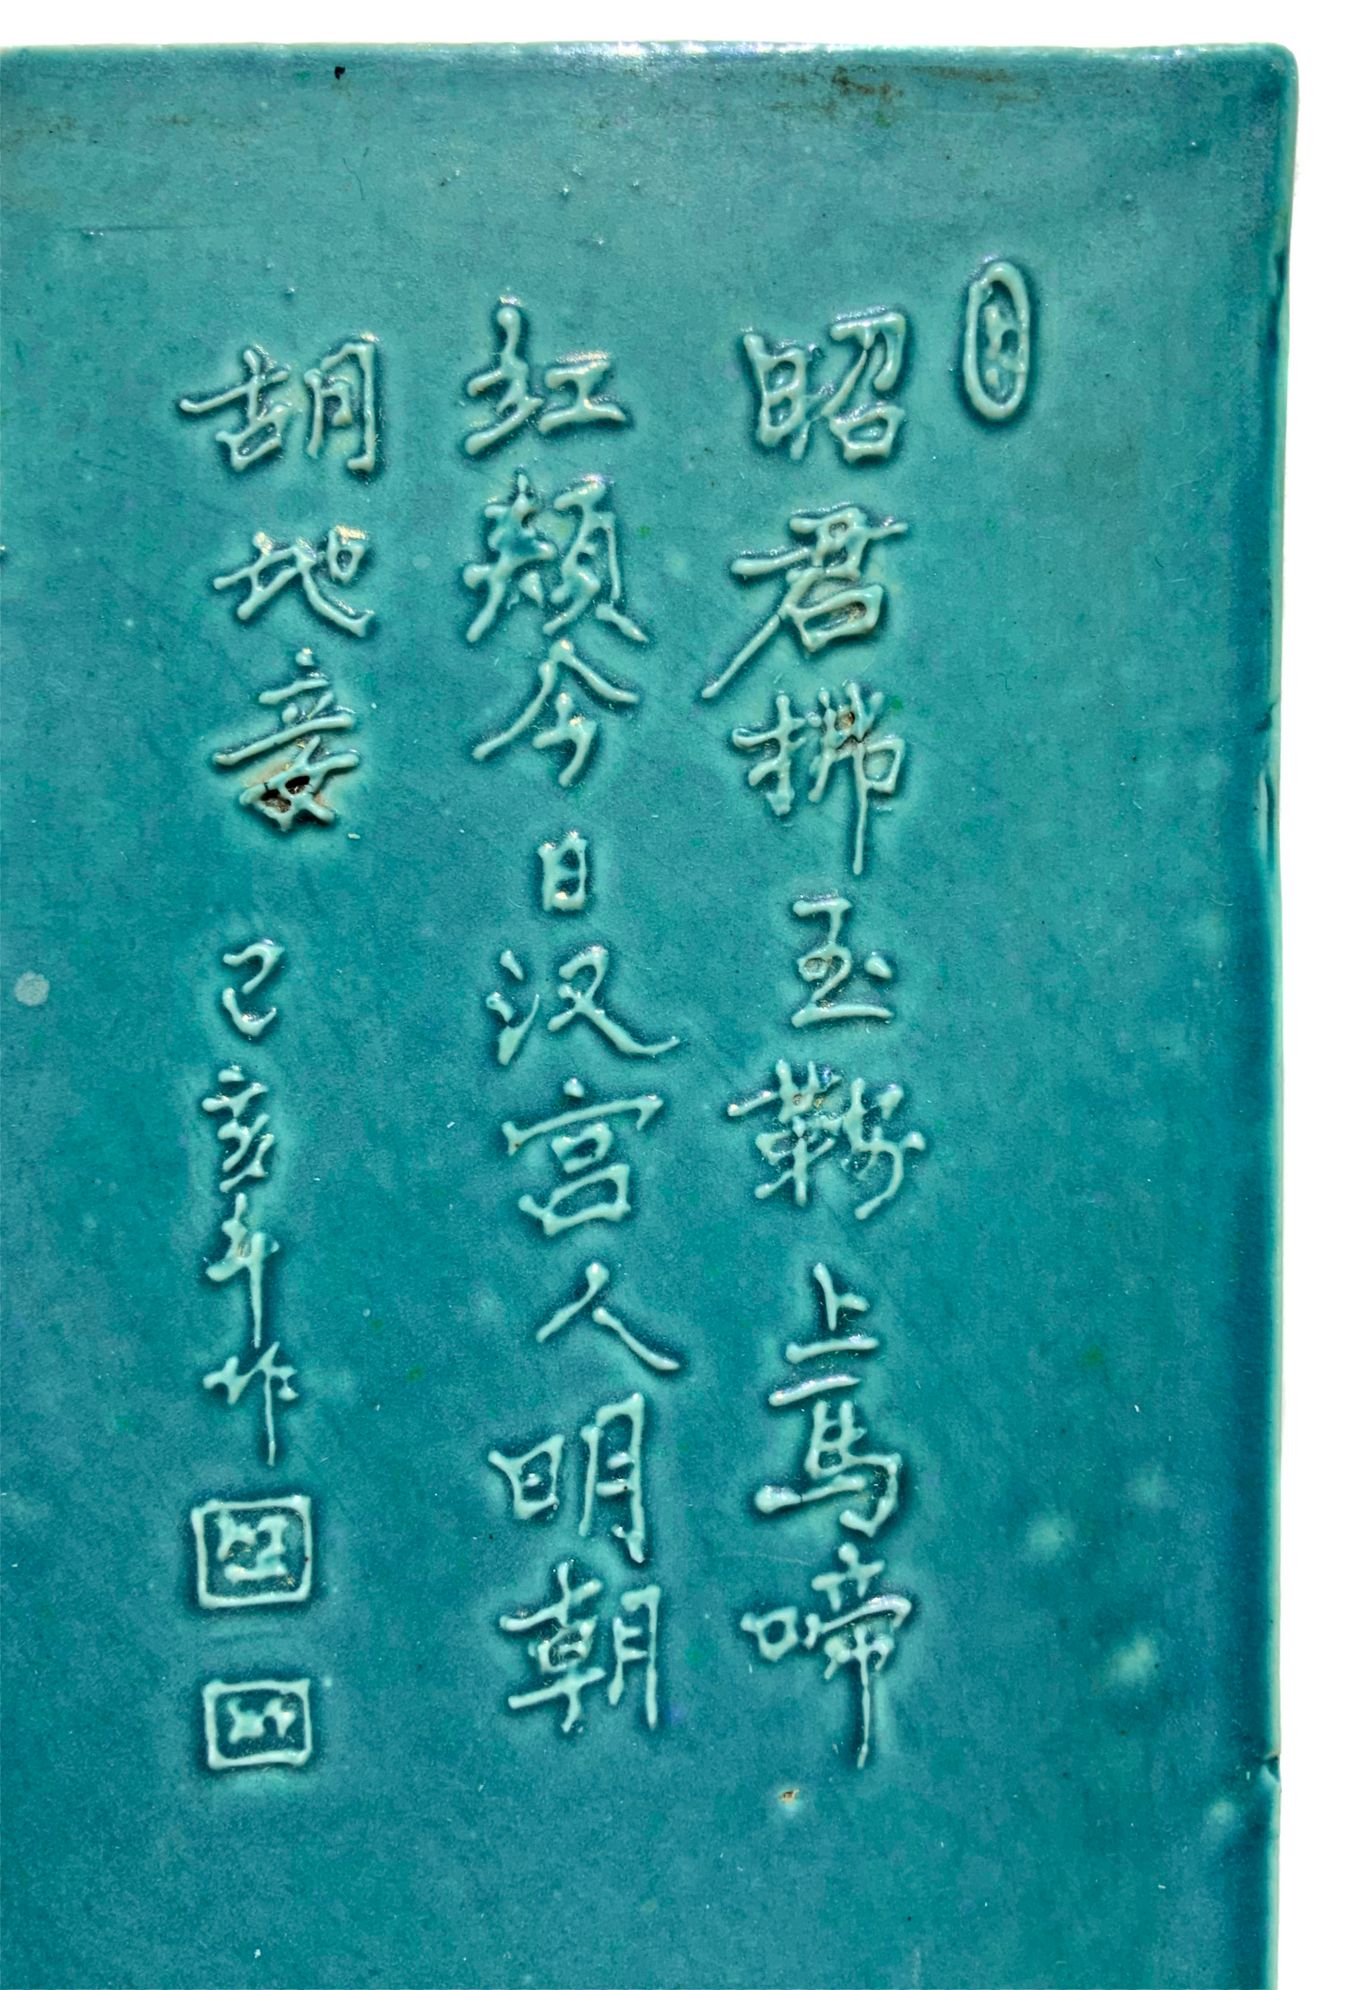 昭君拂玉鞍上馬啼
红頰今日汉宫人明朝
胡地妾 己亥年作